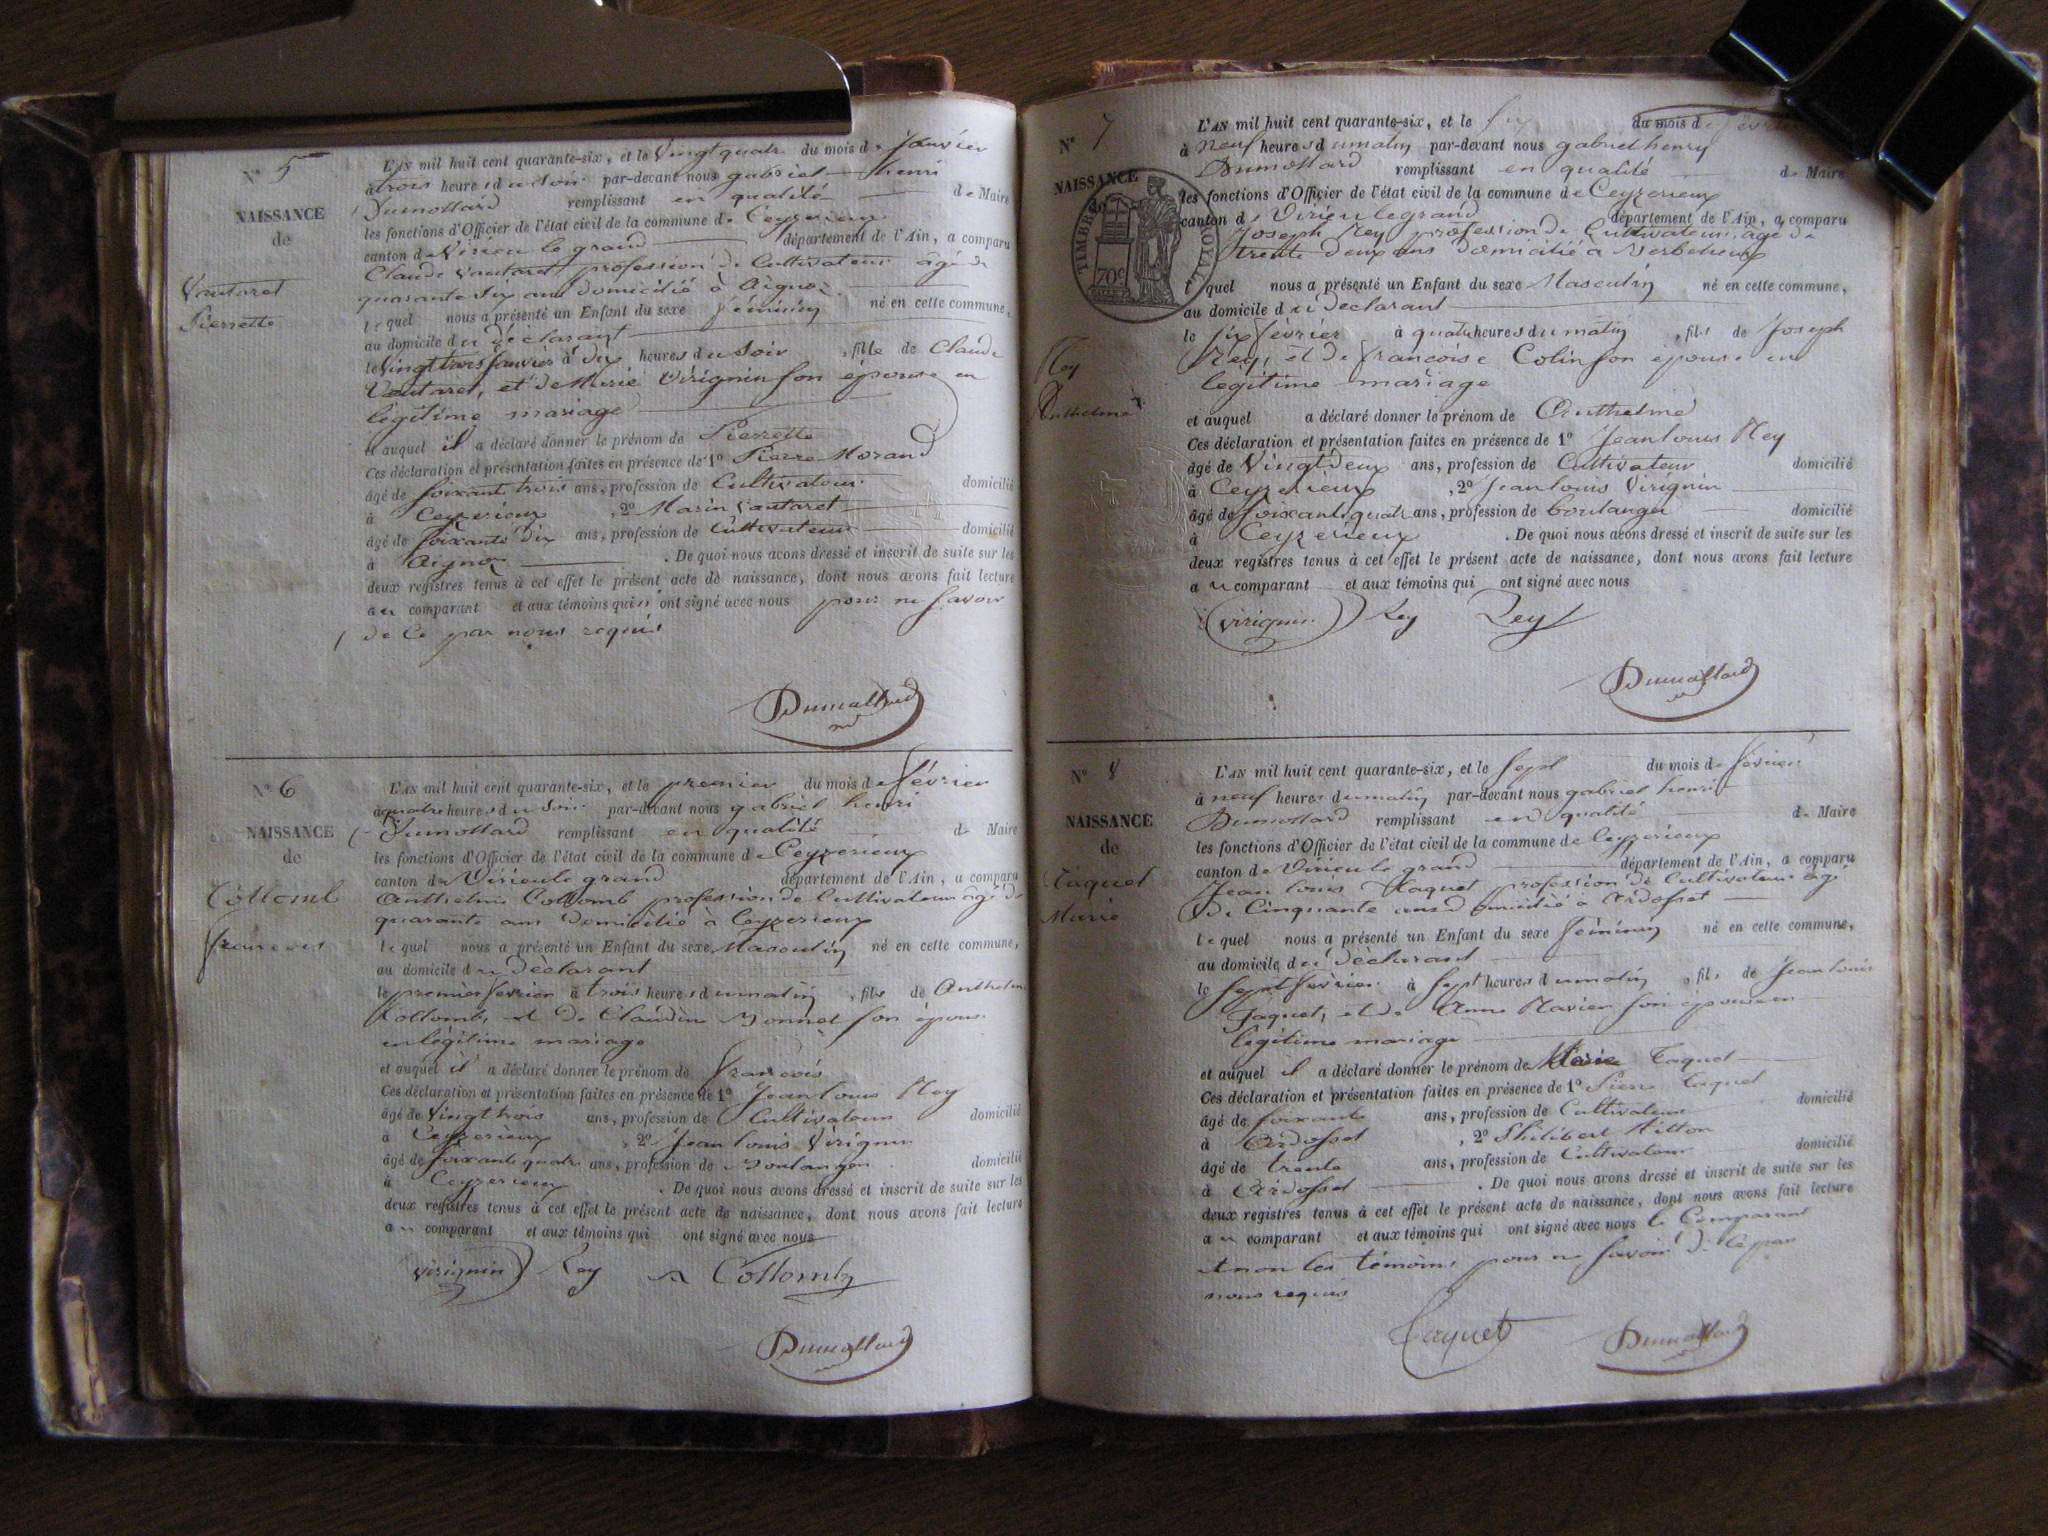 N° 5
NAISSANCE
de
Vautaret
Pierrette
L'AN mil huit cent quarante-six, et le Vingt quatre du mois de Janvier
à trois heures du soir par-devant nous gabriel henri
Dumollard remplissant en qualité de Maire
les fonctions d'Officier de l'état civil de la commune de Ceyzerieux
canton de Virieu le grand département de l'Ain, a comparu
Claude Vautaret profession de Cultivateur âgé de
quarante six ans domicilié à Aignoz
lequel nous a présenté un Enfant du sexe féminin né en cette commune,
au domicile du déclarant
le Vingt trois Janvier à dix heures du Soir, fille de Claude
Vautaret, et de Marie Virignin son épouse en
légitime mariage
et auquel il a déclaré donner le prénom de Pierrette
Ces déclaration et présentation faites en présence de 1° Pierre Morand
âgé de soixante trois ans, profession de Cultivateur domicilié
à Ceyzerieux, 2° Marin Vautaret
âgé de soixante dix ans, profession de Cultivateur domicilié
à Aignoz. De quoi nous avons dressé et inscrit de suite sur les
deux registres tenus à cet effet le présent acte de naissance, dont nous avons fait lecture
au comparant et aux témoins qui n'ont signé avec nous pour ne savoir
de ce par nous requis
Dumollard
N° 6
NAISSANCE
de
Collomb
francois
L'AN mil huit cent quarante-six, et le premier du mois de février
à quatre heures du Soir par-devant nous gabriel henri
Dumollard remplissant en qualité de Maire
les fonctions d'Officier de l'état civil de la commune de Ceyzerieux
canton de Virieu le grand département de l'Ain, a comparu
Anthelme Collomb profession de Cultivateur âgé de
quarante ans domicilié à Ceyzerieux
lequel nous a présenté un Enfant du sexe Masculin né en cette commune,
au domicile du Déclarant
le premier fevrier à trois heures du matin, fils de Anthelme
Collomb, et de Claudine Bonnet son épouse
en légitime mariage
et auquel il a déclaré donner le prénom de francois
Ces déclaration et présentation faites en présence de 1° Jean louis Rey
âgé de Vingt trois ans, profession de Cultivateur domicilié
à Ceyzerieux, 2° Jean louis Virignin
âgé de soixante quatre ans, profession de Boulanger domicilié
à Ceyzerieux. De quoi nous avons dressé et inscrit de suite sur les
deux registres tenus à cet effet le présent acte de naissance, dont nous avons fait lecture
au comparant et aux témoins qui ont signé avec nous
virignin Rey Collomb
Dumollard
N° 7
NAISSANCE
de
TIMBRE ROYAL
70c
Rey
Anthelme
L'AN mil huit cent quarante-six, et le six du mois de février
à neuf heures du matin par-devant nous gabriel henry
Dumollard remplissant en qualité de Maire
les fonctions d'Officier de l'état civil de la commune de Ceyzerieux
canton de Virieu le grand département de l'Ain, a comparu
Joseph Rey profession de Cultivateur, âgé de
trente deux ans domicilié à
lequel nous a présenté un Enfant du sexe Masculin né en cette commune,
au domicile du declarant
le six février à quatre heures du matin, fils de Joseph
Rey, et de francoise Colin son épouse en
légitime mariage
et auquel a déclaré donner le prénom de Anthelme
Ces déclaration et présentation faites en présence de 1° Jean louis Rey
âgé de Vingt deux ans, profession de Cultivateur domicilié
à Ceyzerieux, 2° Jean louis Virignin
âgé de soixante quatre ans, profession de boulanger domicilié
à Ceyzerieux. De quoi nous avons dressé et inscrit de suite sur les
deux registres tenus à cet effet le présent acte de naissance, dont nous avons fait lecture
au comparant et aux témoins qui ont signé avec nous
virignin Rey Rey
Dumollard
N° 8
NAISSANCE
de
Taquet
Marie
L'AN mil huit cent quarante-six, et le sept du mois de février
à neuf heures du matin par-devant nous gabriel henri
Dumollard remplissant en qualité de Maire
les fonctions d'Officier de l'état civil de la commune de Ceyzerieux
canton de Virieu le grand département de l'Ain, a comparu
Jean louis Taquet profession de Cultivateur âgé
de Cinquante ans domicilié à Ardosset
lequel nous a présenté un Enfant du sexe féminin né en cette commune,
au domicile du déclarant
le sept février à sept heures du matin, fils de Jean louis
Taquet, et de Anne Navier son épouse en
légitime mariage
et auquel il a déclaré donner le prénom de Marie Taquet
Ces déclaration et présentation faites en présence de 1° Pierre Taquet
âgé de soixante ans, profession de Cultivateur domicilié
à Ardosset, 2° Philibert
âgé de trente ans, profession de Cultivateur domicilié
à Ardosset. De quoi nous avons dressé et inscrit de suite sur les
deux registres tenus à cet effet le présent acte de naissance, dont nous avons fait lecture
au comparant et aux témoins qui ont signé avec nous le Comparant
et non les témoins pour ne savoir de ce par
nous requis
Taquet Dumollard